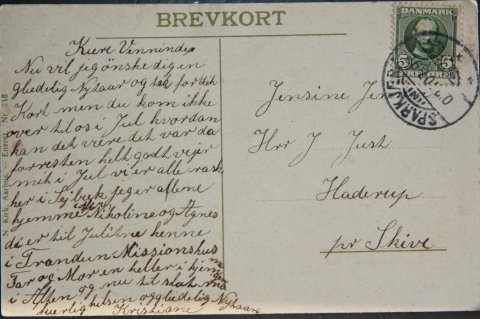 BREVKORT
DANMARK
5
SPARKJÆR
N. Kirk, Aarhus. — Eneret Nr. 218
Kære Veninde
Nu vil jeg ønske dig en
glædelig Nytaar og tak for dit
Kort men du kom ikke
over til os i Jul hvordan
kan det være det var da
forresten helt godt vejer
mit i Jul vi er alle rask
her i Sejbæk jeg er allene
hjemme Nikoline og Agnes
di er til Juletræ henne
i Trandum Missionshus
Far og Mor en heller i hjem
i Aften og nu til slut
kærlig hilsen og glædelig Nytaar
Kristiane
Jensine Jen
Hrr J Just
Haderup
pr Skive